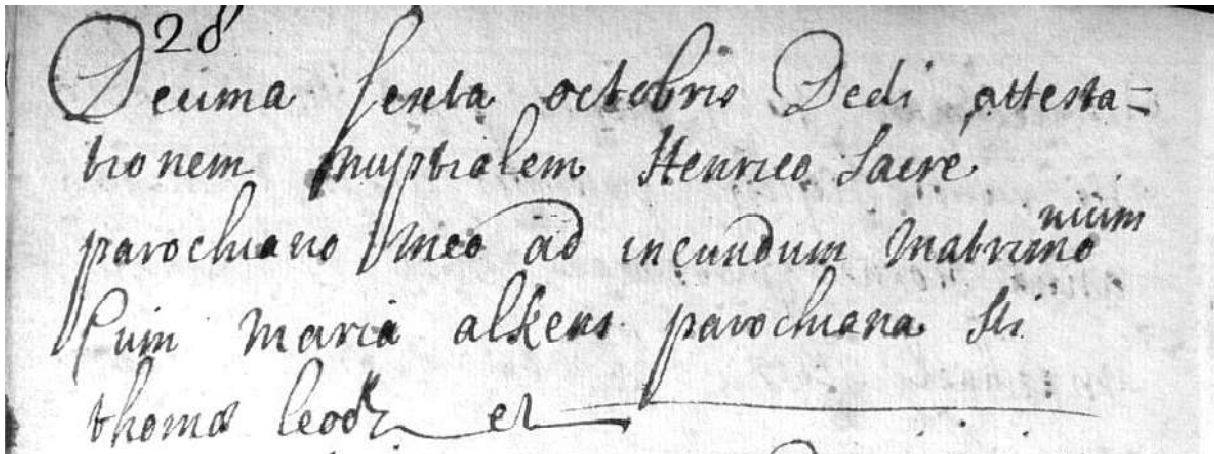 28
Decima sexta octobris Dedi attesta=
tionem nuptialem Henrico Sacré
parochiano meo ad ineundum matrimo
nium
Cum maria alkens parochiana sti
thomæ leod et